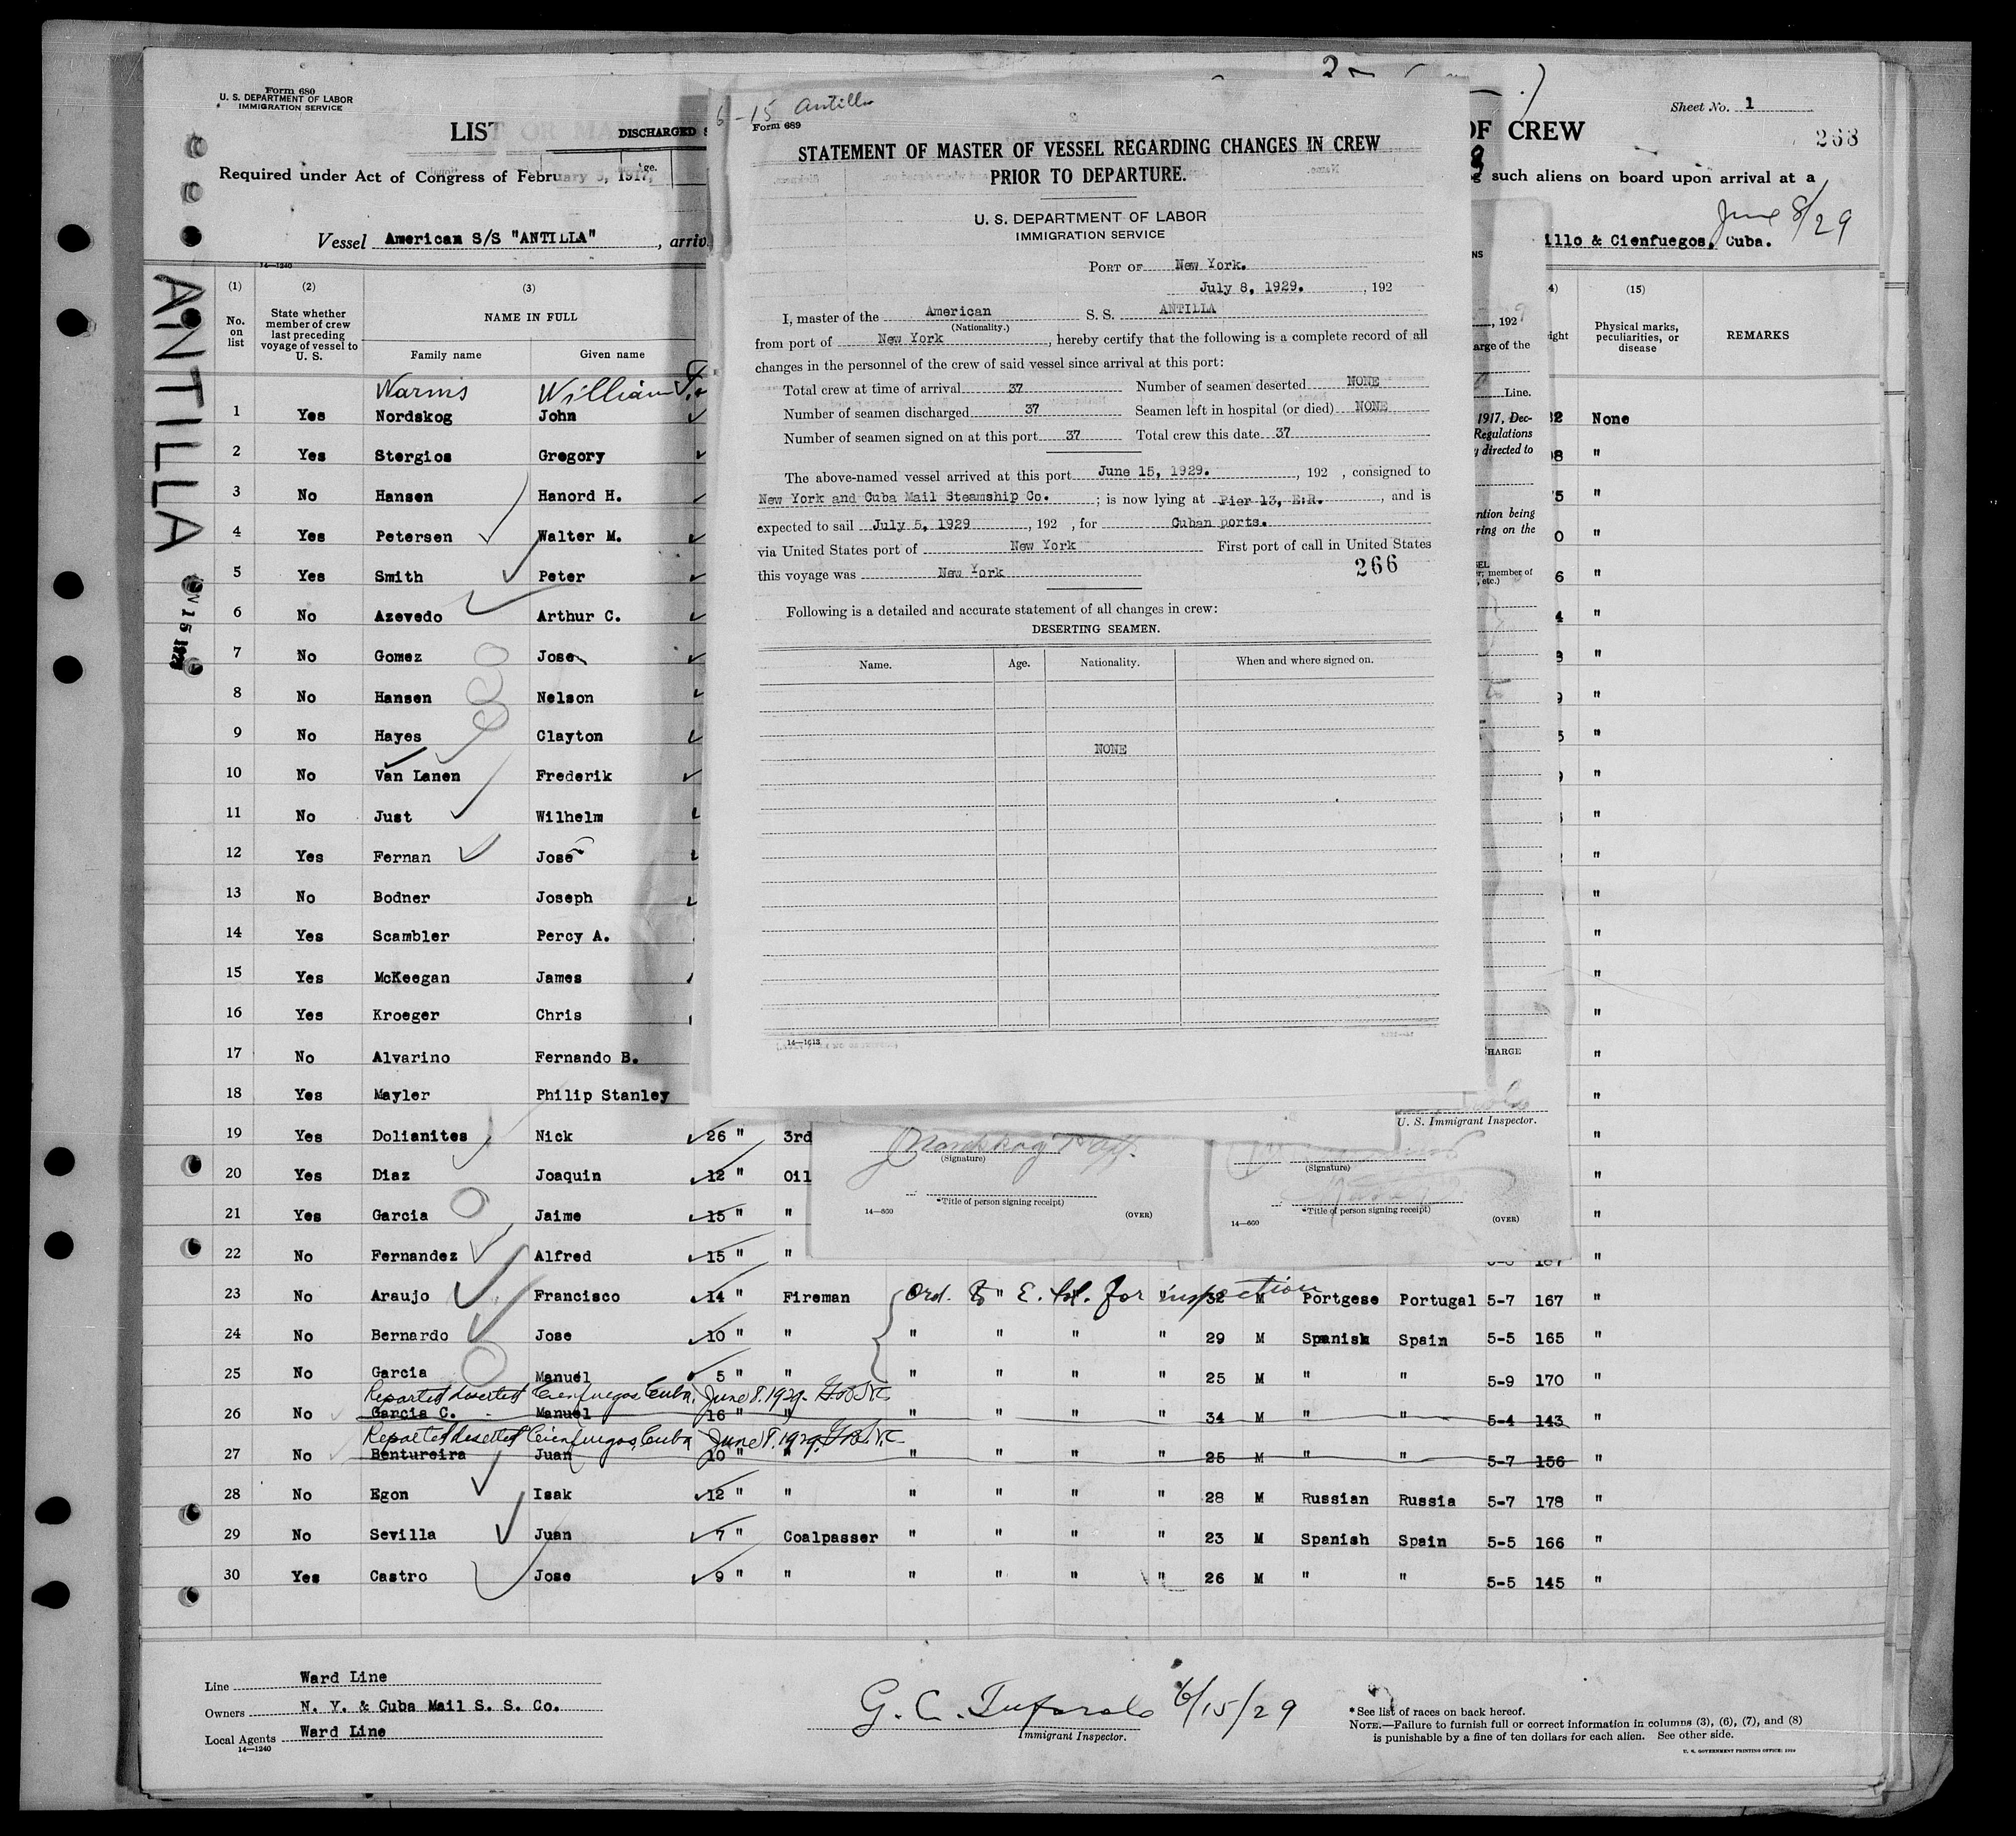 Form 680
U. S. DEPARTMENT OF LABOR
IMMIGRATION SERVICE
LIST OR
DISCHARGED
Required under Act of Congress of February 5, 1917,
Vessel American S/S "ANTILLA", arriv
ANTILLA
OF CREW
Sheet No. 1
268
such aliens on board upon arrival at a
June 8/29
illo & Cienfuegos, Cuba.
6-15 Antilla
Form 689
STATEMENT OF MASTER OF VESSEL REGARDING CHANGES IN CREW
PRIOR TO DEPARTURE.
U. S. DEPARTMENT OF LABOR
IMMIGRATION SERVICE
PORT OF New York.
July 8, 1929. , 192
I, master of the American S. S. ANTILLA
(Nationality.)
from port of New York, hereby certify that the following is a complete record of all
changes in the personnel of the crew of said vessel since arrival at this port:
Total crew at time of arrival 37 Number of seamen deserted NONE
Number of seamen discharged 37 Seamen left in hospital (or died) NONE
Number of seamen signed on at this port 37 Total crew this date 37
The above-named vessel arrived at this port June 15, 1929. , 192 , consigned to
New York and Cuba Mail Steamship Co. ; is now lying at Pier 13, E.R. , and is
expected to sail July 5, 1929 , 192 , for Cuban ports.
via United States port of New York First port of call in United States
this voyage was New York
266
Following is a detailed and accurate statement of all changes in crew:
DESERTING SEAMEN.
Name. Age. Nationality. When and where signed on.
NONE
14—1613
, 192
arge of the
Line.
1917, Dec-
Regulations
y directed to
ntion being
ring on the
member of
etc.)
HARGE
U. S. Immigrant Inspector.
(Signature)
*Title of person signing receipt)
14—600
(OVER)
(Signature)
*Title of person signing receipt)
14—600
(OVER)
14—1240
(1) (2) (3) (15)
No. on list State whether member of crew last preceding voyage of vessel to U. S. NAME IN FULL Physical marks, peculiarities, or disease REMARKS
Family name Given name
Warms William
1 Yes Nordskog John None
2 Yes Stergios Gregory "
3 No Hansen Hanord H. "
4 Yes Petersen Walter M. "
5 Yes Smith Peter "
6 No Azevedo Arthur C. "
7 No Gomez Jose "
8 No Hansen Nelson "
9 No Hayes Clayton "
10 No Van Lanen Frederik "
11 No Just Wilhelm "
12 Yes Fernan Jose "
13 No Bodner Joseph "
14 Yes Scambler Percy A. "
15 Yes McKeegan James "
16 Yes Kroeger Chris "
17 No Alvarino Fernando B. "
18 Yes Mayler Philip Stanley "
19 Yes Dolianites Nick 26 " 3rd "
20 Yes Diaz Joaquin 12 " Oil "
21 Yes Garcia Jaime 15 " " "
22 No Fernandez Alfred 15 " " "
Ord. to E. Isl. for inspection
23 No Araujo Francisco 14 " Fireman " " 32 M Portgese Portugal 5-7 167 "
24 No Bernardo Jose 10 " " " " " " 29 M Spanish Spain 5-5 165 "
25 No Garcia Manuel 5 " " " " " " 25 M " " 5-9 170 "
Reported deserted Cienfuegos, Cuba, June 8. 1929.
26 No Garcia C. Manuel 16 " " " " " " 34 M " " 5-4 143 "
Reported deserted Cienfuegos, Cuba June 8. 1929.
27 No Bentureira Juan 10 " " " " " " 25 M " " 5-7 156 "
28 No Egon Isak 12 " " " " " " 28 M Russian Russia 5-7 178 "
29 No Sevilla Juan 7 " Coalpasser " " " " 23 M Spanish Spain 5-5 166 "
30 Yes Castro Jose 9 " " " " " " 26 M " " 5-5 145 "
Line Ward Line
Owners N. Y. & Cuba Mail S. S. Co.
Local Agents Ward Line
14—1240
6/15/29
Immigrant Inspector.
* See list of races on back hereof.
NOTE.—Failure to furnish full or correct information in columns (3), (6), (7), and (8)
is punishable by a fine of ten dollars for each alien. See other side.
U. S. GOVERNMENT PRINTING OFFICE: